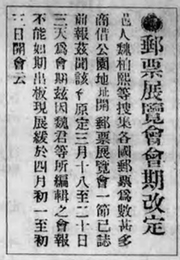 郵票展覽會會期改定
邑人魏柏熙等搜集各國郵票爲數甚多
商借公園地址開郵票展覽會一節已誌
前報茲聞該會原定三月十八至二十日
三天爲會期茲因魏君等所編輯之會報
不能如期出板現展緩於四月初一至初
三日開會云